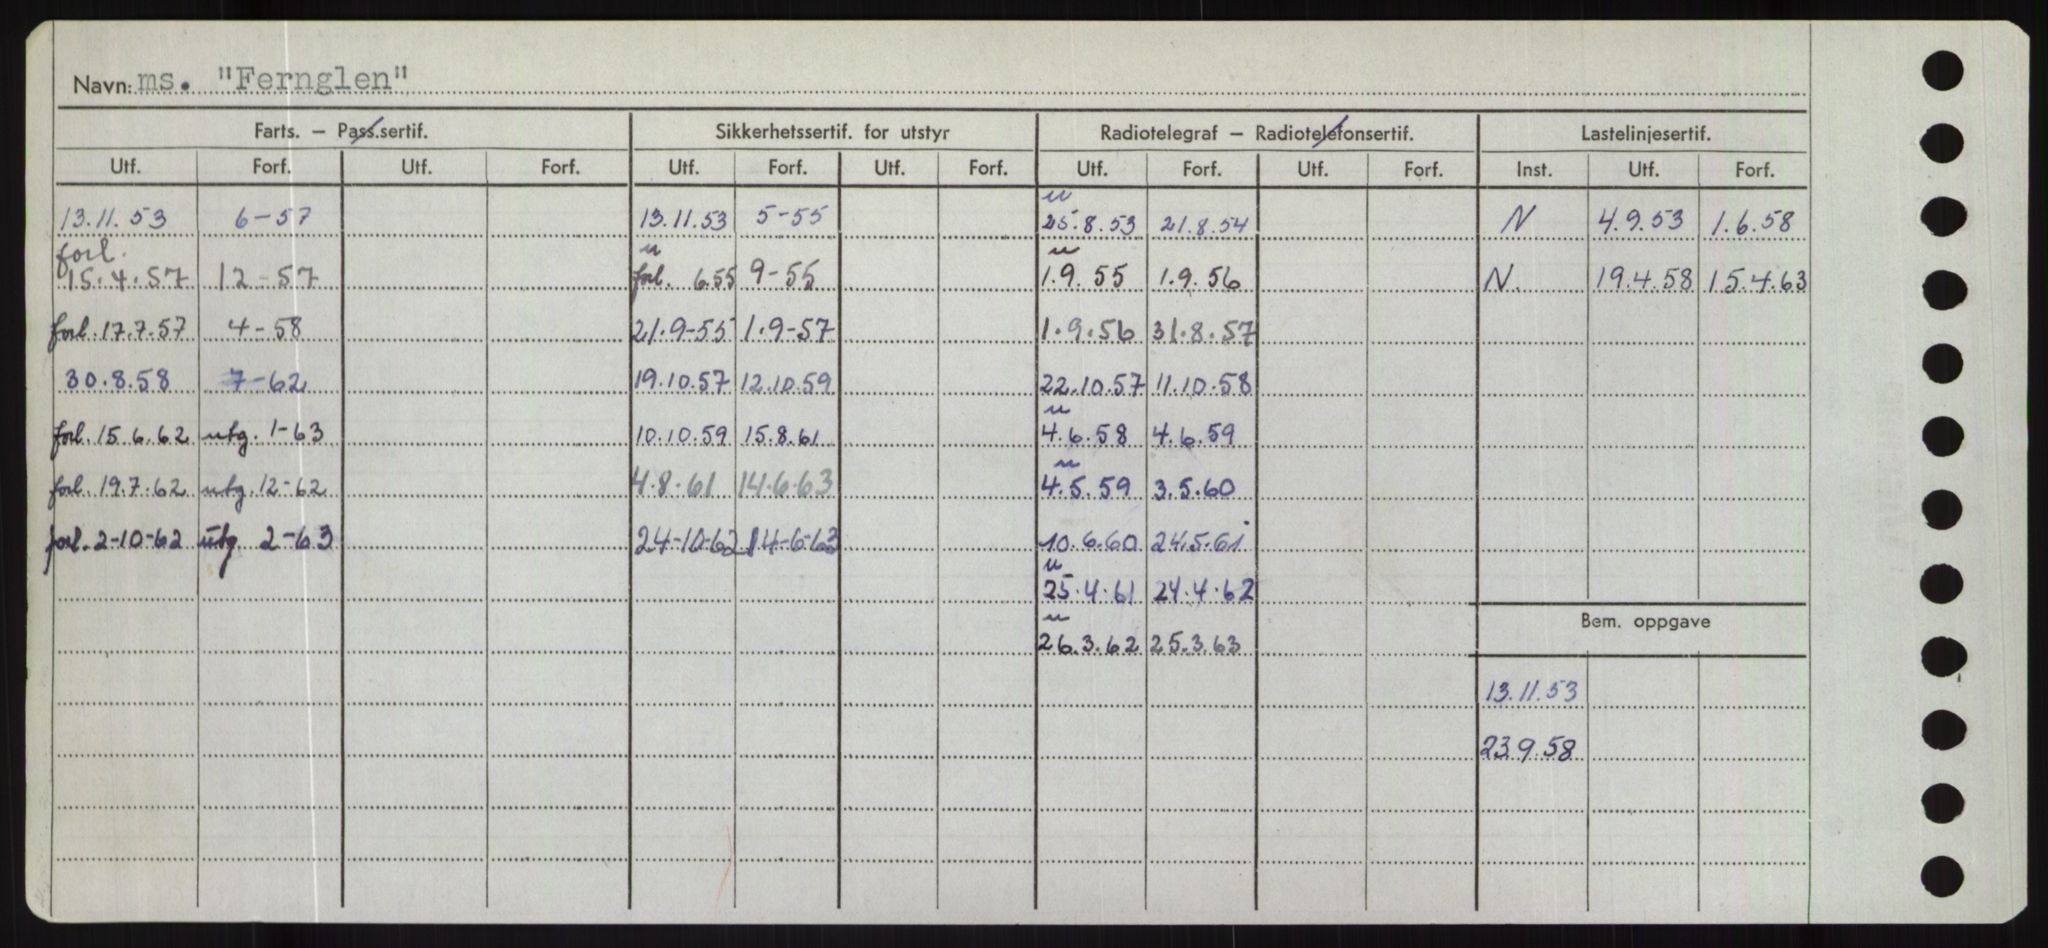 Navn: ms. "Fernglen"
Farts. – Pass.sertif. Sikkerhetssertif. for utstyr Radiotelegraf – Radiotelefonsertif. Lastelinjesertif.
Utf. Forf. Utf. Forf. Utf. Forf. Utf. Forf. Utf. Forf. Utf. Forf. Inst. Utf. Forf.
u
13.11.53 6-57 13.11.53 5-55 25.8.53 21.8.54 N 4.9.53 1.6.58
forl. u u
15.4.57 12-57 forl. 6.55 9-55 1.9.55 1.9.56 N. 19.4.58 15.4.63
forl. 17.7.57 4-58 21.9-55 1.9-57 1.9.56 31.8.57
30.8.58 7-62 19.10.57 12.10.59 22.10.57 11.10.58
u
forl. 15.6.62 utg. 1-63 10.10.59 15.8.61 4.6.58 4.6.59
u
forl. 19.7.62 utg. 12-62 4.8.61 14.6.63 4.5.59 3.5.60
forl. 2-10-62 utg 2-63 24-10-62 14-6-63 10.6.60 24.5.61
u
25.4.61 24.4.62
Bem. oppgave
u
26.3.62 25.3.63
13.11.53
23.9.58